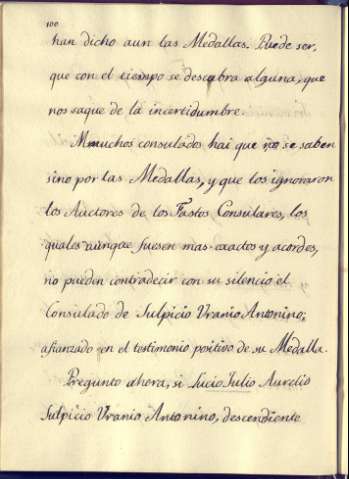 100
han dicho aun las Medallas. Puede ser,
que con el tiempo se descubra alguna, que
nos saque de la incertidumbre.
Muchos consulados hai que no se saben
sino por las Medallas, y que los ignoraron
los Auctores de los Fastos Consulares, los
quales aunque fuesen mas exactos y acordes,
no pueden contradecir con su silencio el
Consulado de Sulpicio Vranio Antonino;
afianzado en el testimonio positivo de su Medalla.
Pregunto ahora, si Lucio Julio Aurelio
Sulpicio Vranio Antonino, descendiente